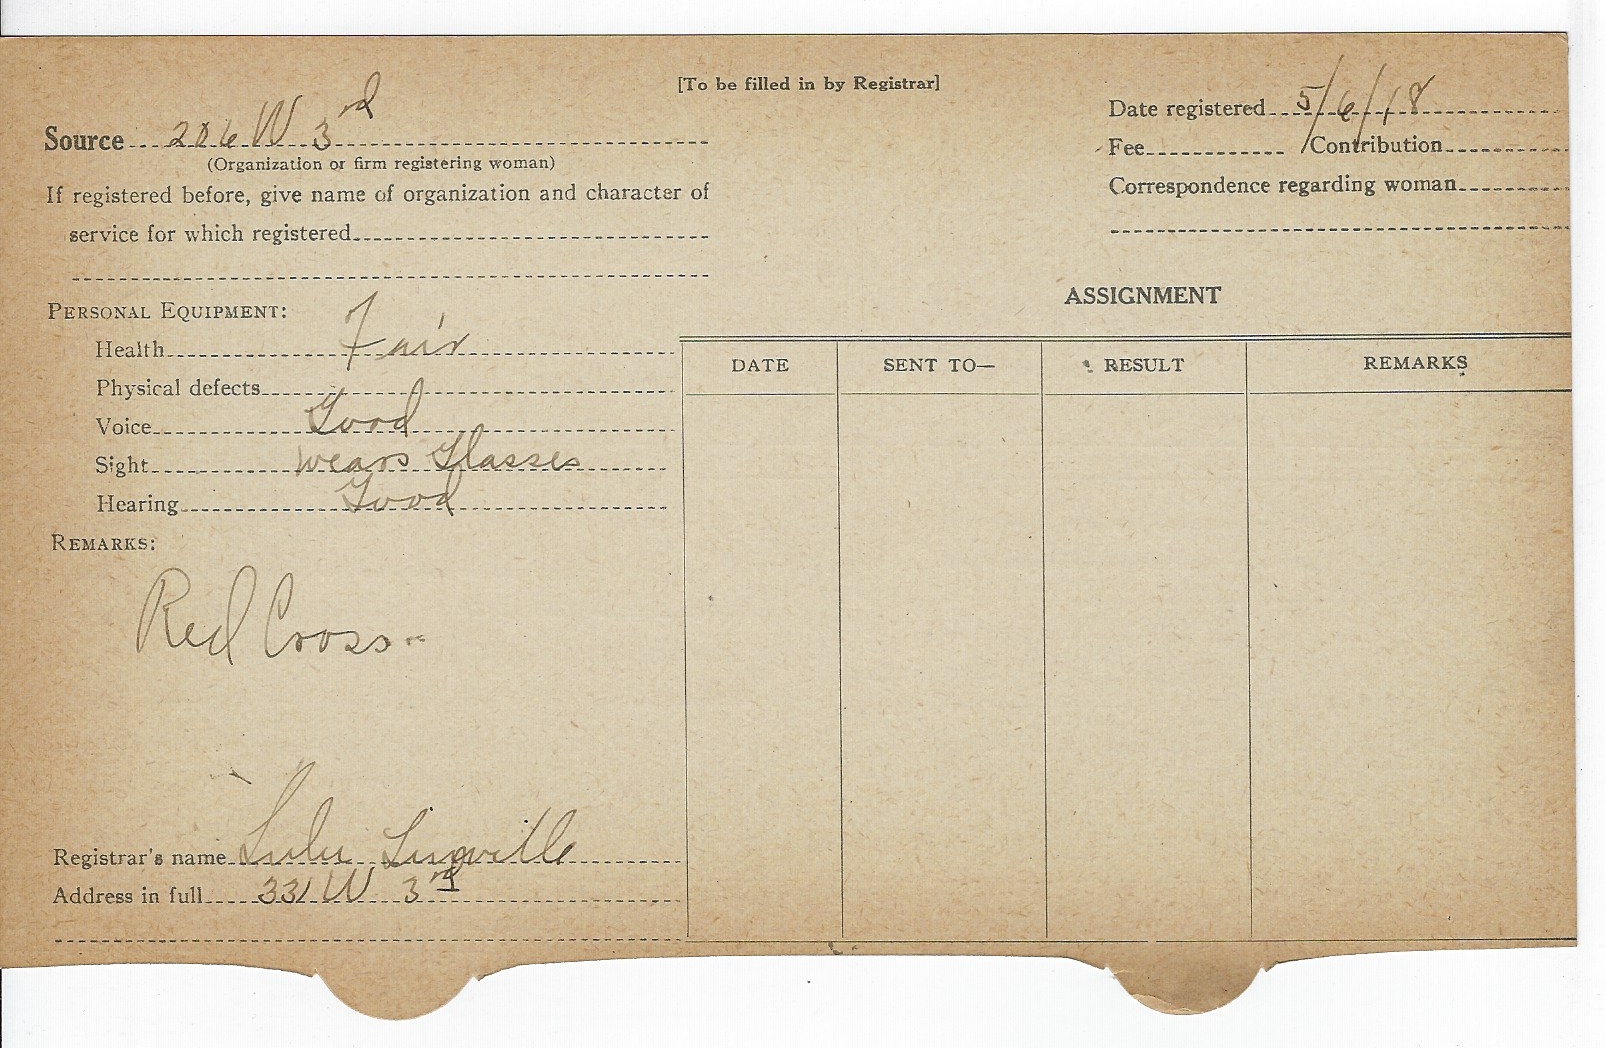 [To be filled in by Registrar]
Source 206 W 3rd
(Organization or firm registering woman)
If registered before, give name of organization and character of
service for which registered
Date registered 5/6/18
Fee Contribution
Correspondence regarding woman
PERSONAL EQUIPMENT:
Health Fair
Physical defects
Voice Good
Sight wears Glasses
Hearing Good
REMARKS:
Red Cross
Registrar's name Lulu Linville
Address in full 331 W 3rd
ASSIGNMENT
DATE SENT TO— RESULT REMARKS